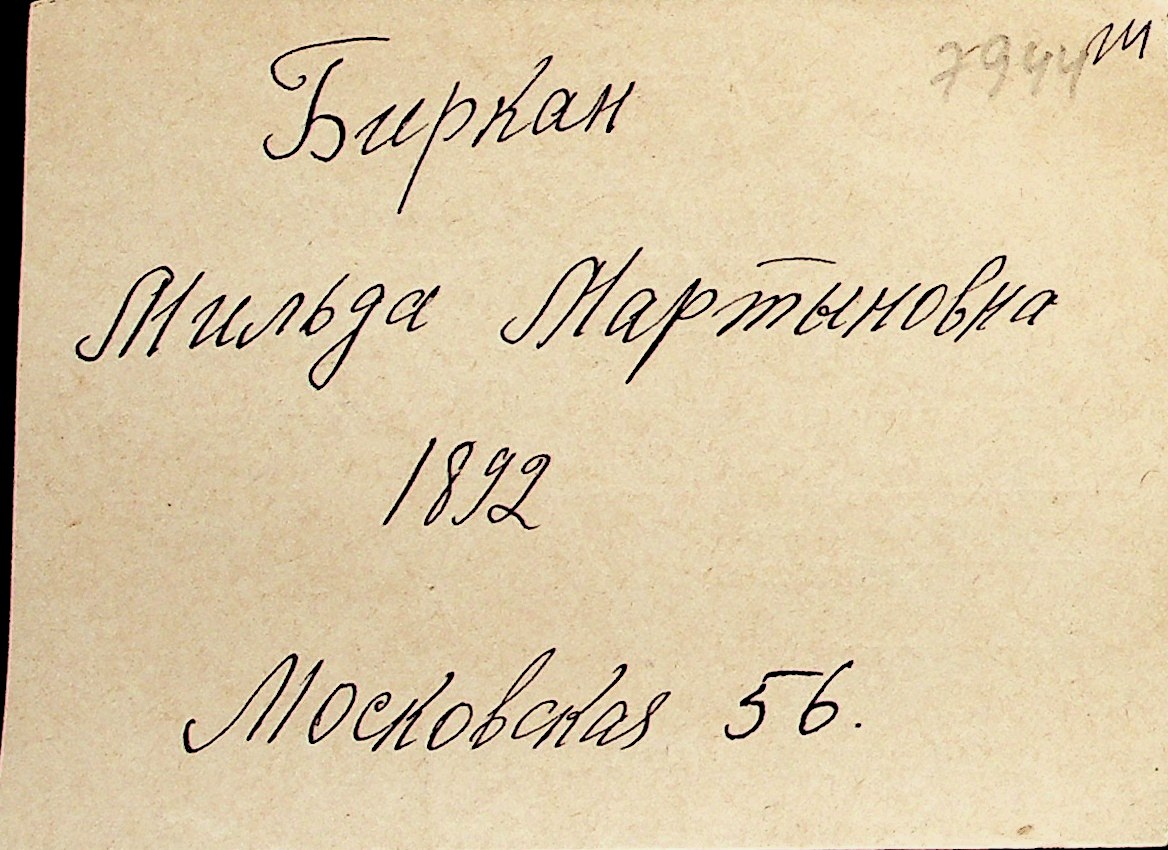 7944 Ш
Биркан
Мильда Мартыновна
1892
Московская 56.